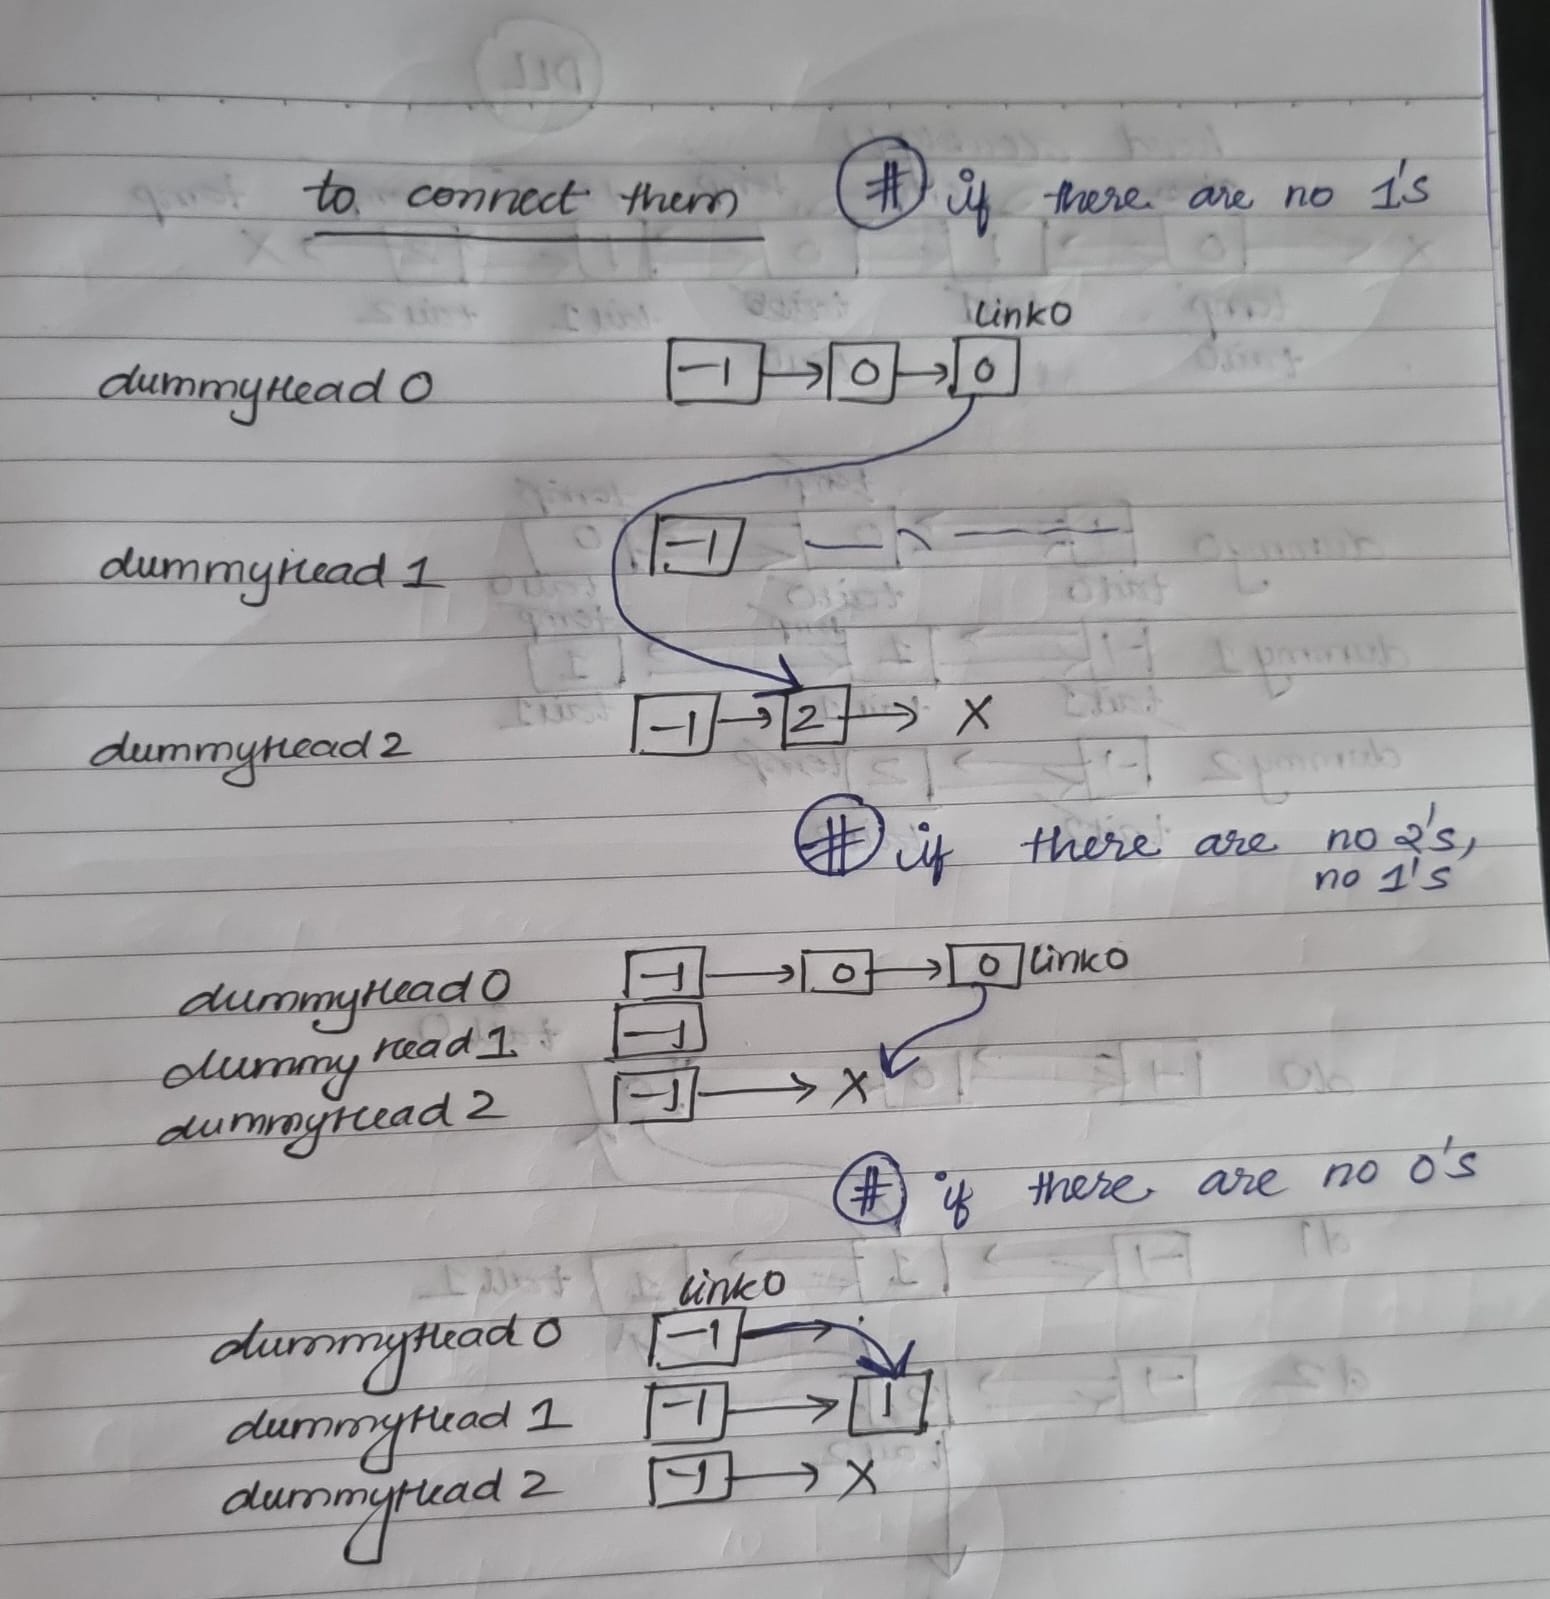 to connect them # if there are no 1's
link0
dummyHead 0 -1 → 0 → 0
dummyHead 1 -1
dummyHead 2 -1 → 2 → X
# if there are no 2's,
no 1's
dummyHead 0 -1 → 0 → 0 link0
dummyHead 1 -1
dummyHead 2 -1 → X
# if there are no 0's
link0
dummyHead 0 -1 →
dummyHead 1 -1 → 1
dummyHead 2 -1 → X